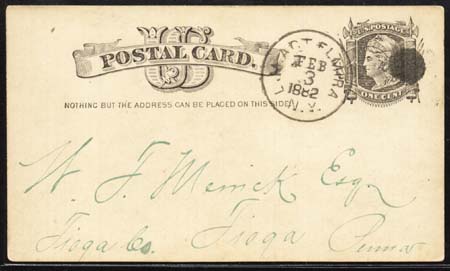 US
POSTAL CARD.
NOTHING BUT THE ADDRESS CAN BE PLACED ON THIS SIDE.
EAST ELMIRA
FEB
3
1882
N.Y.
U.S. POSTAGE
ONE CENT
W. F. Merrick Esq.
Tioga Co. Tioga Penna